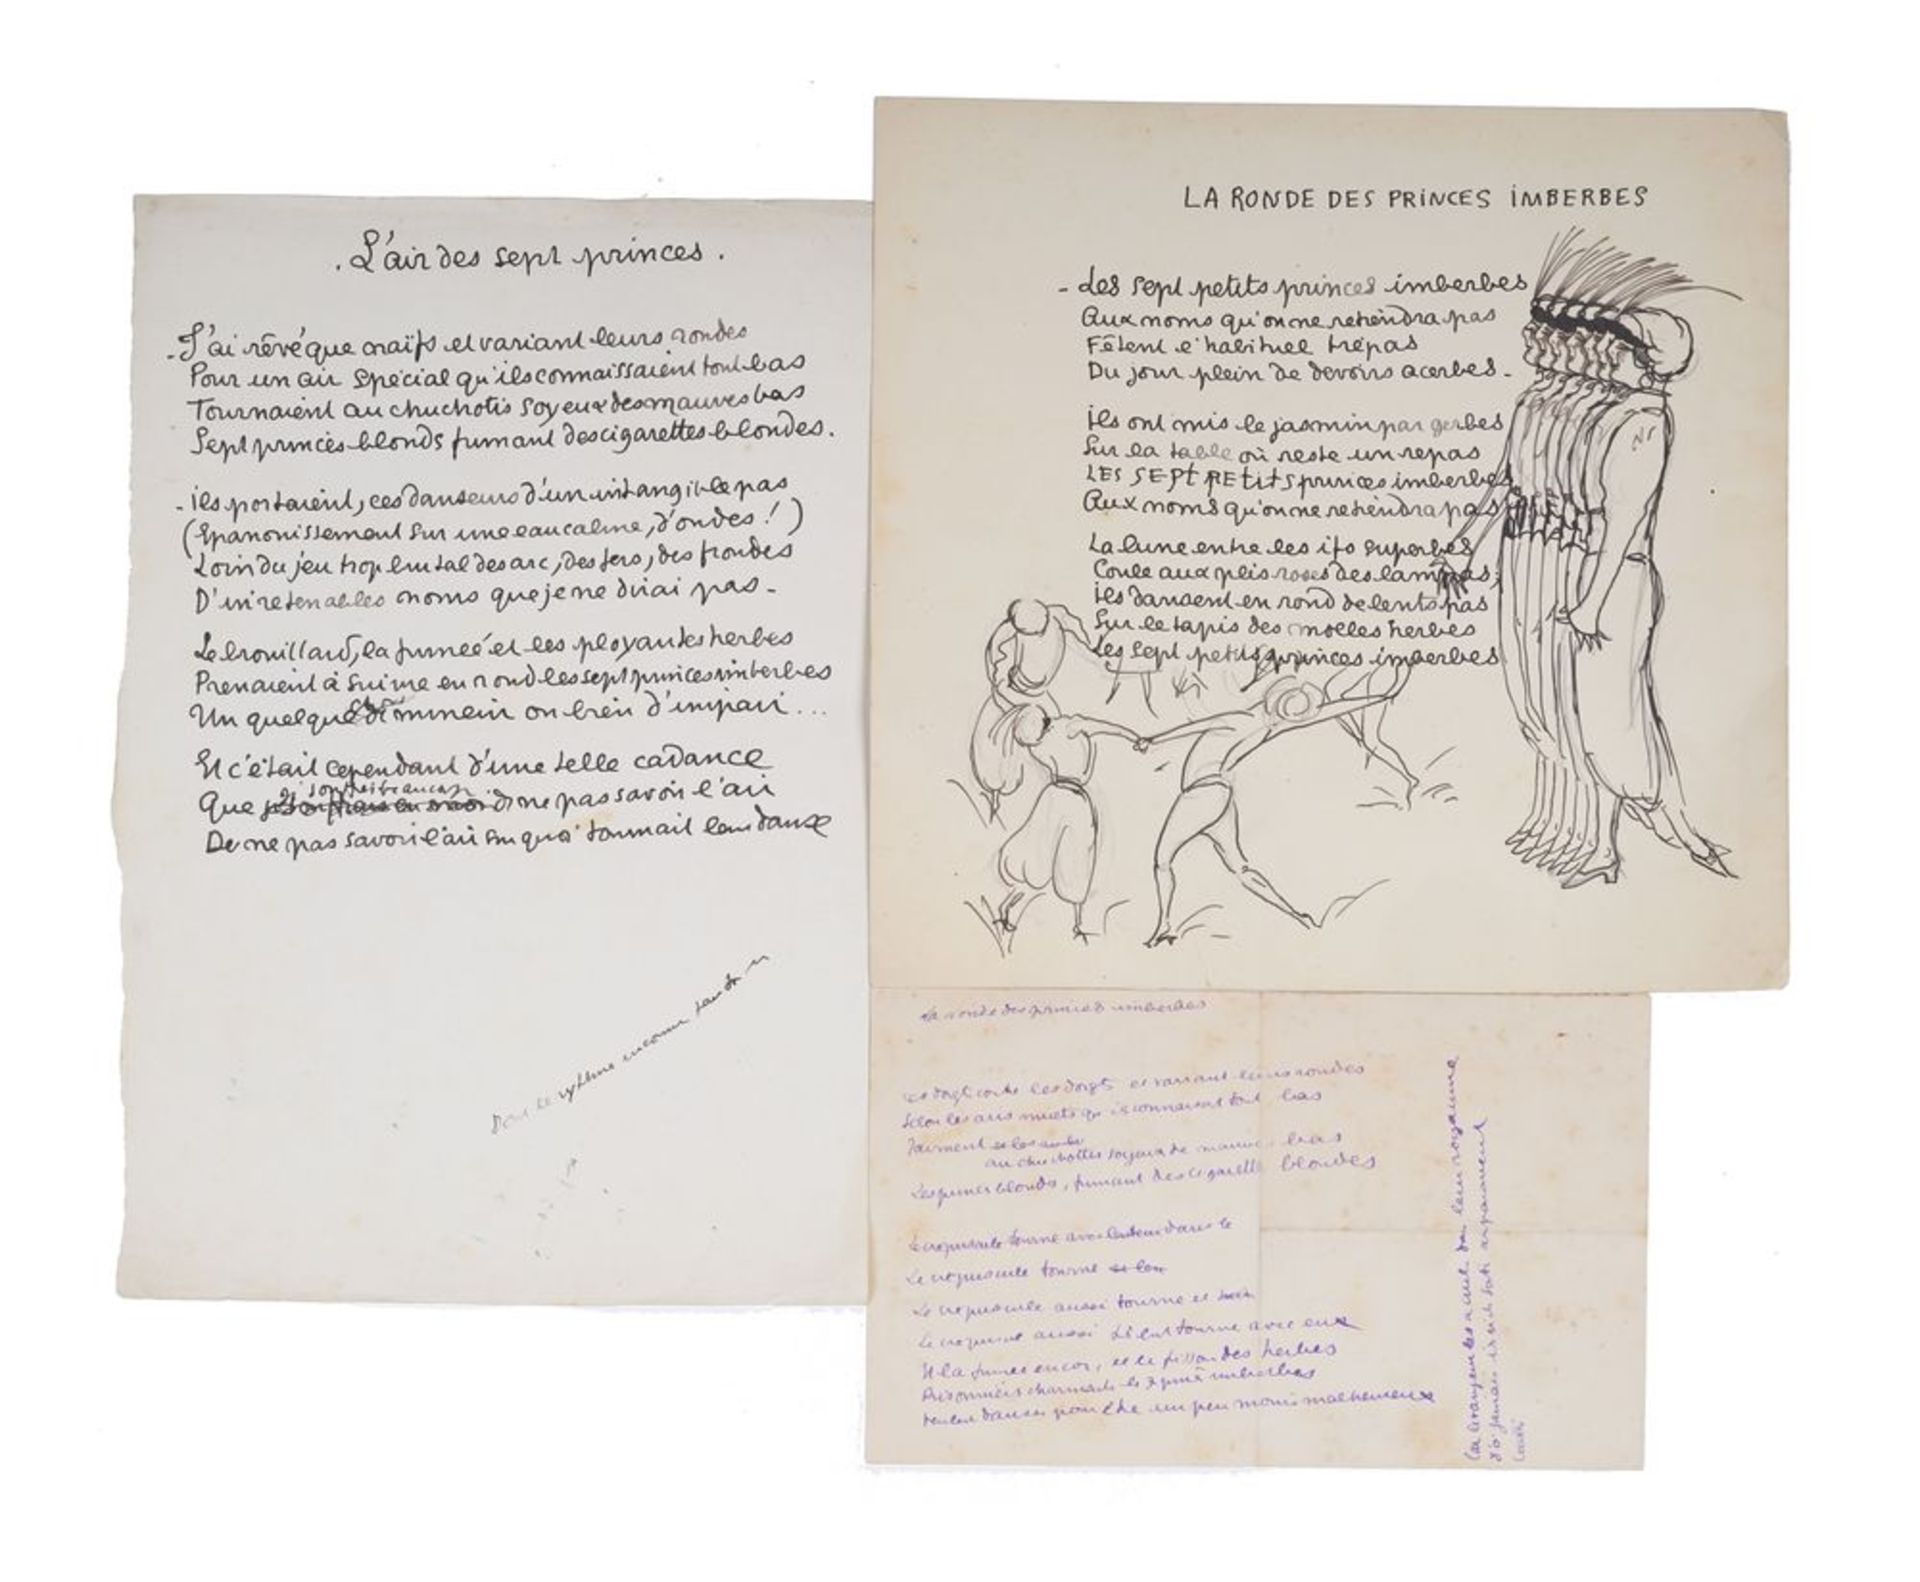 . L'air des sept princes .
- J'ai rêvé que naïfs et variant leurs rondes
Pour un air spécial qu'ils connaissaient tout bas
Tournaient au chuchotis soyeux des mauves bas
Sept princes blonds fumant des cigarettes blondes.
- ils portaient, ces danseurs d'un intangible pas
(Epanouissement sur une eau calme, d'ondes ! )
Loin du jeu trop brutal des arc, des fers, des frondes
D'inretenables noms que je ne dirai pas -
Le brouillard, la fumée et les ployantes herbes
Prenaient à suivre en rond les sept princes imberbes
Un quelque de mineur ou bien d'impair ...
Et c'était cependant d'une telle cadance
Que je di ne pas savoir l'air
De ne pas savoir l'air sur quoi tournait leur danse
LA RONDE DES PRINCES IMBERBES
- Les sept petits princes imberbes
Aux noms qu'on ne retiendra pas
Fêtent l'habituel trépas
Du jour plein de devoirs acerbes -
ils ont mis le jasmin par gerbes
Sur la table où reste un repas
LES SEPT PETITS princes imberbes
Aux noms qu'on ne retiendra pas
La lune entre les ifs superbes
Coule aux plis roses des lampas ;
ils dansent en rond de lents pas
Sur le tapis des molles herbes
Les sept petits princes imberbes
La ronde des princes imberbes
Les doigts contre les doigts et variant leurs rondes
Selon les airs muets qu'ils connaissent tout bas
Tournent
au chuchottis soyeux de mauves bas
Les princes blonds, fumant des cigarettes blondes
Le crépuscule tourne avec dans le
Le crépuscule tourne
Le crépuscule aussi tourne et
Le crépuscule aussi tourne avec eux
Et la fumée encor, et le frisson des herbes
Prisonniers charmants les 7 princes imberbes
danser pour être un peu moins malheureux
dans leur royaume
jamais